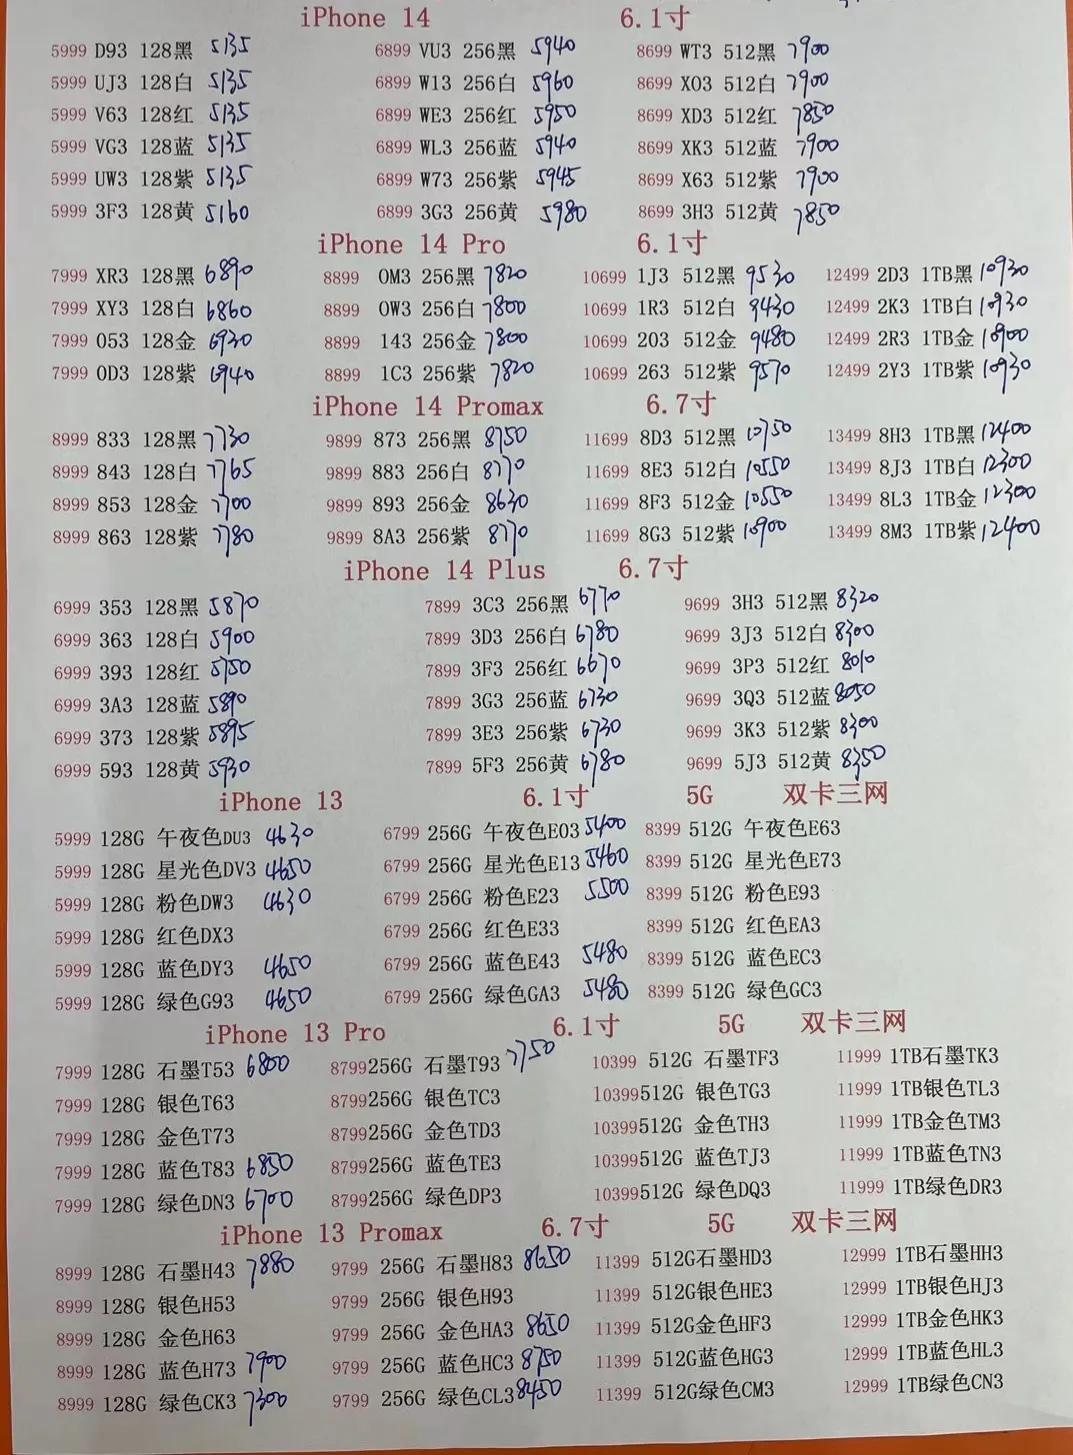 iPhone 14 6.1寸
5999 D93 128黑 5135 6899 VU3 256黑 5940 8699 WT3 512黑 7900
5999 UJ3 128白 5135 6899 W13 256白 5960 8699 XO3 512白 7900
5999 V63 128红 5135 6899 WE3 256红 5950 8699 XD3 512红 7850
5999 VG3 128蓝 5135 6899 WL3 256蓝 5940 8699 XK3 512蓝 7900
5999 UW3 128紫 5135 6899 W73 256紫 5945 8699 X63 512紫 7900
5999 3F3 128黄 5160 6899 3G3 256黄 5980 8699 3H3 512黄 7850
iPhone 14 Pro 6.1寸
7999 XR3 128黑 6890 8899 0M3 256黑 7820 10699 1J3 512黑 9530 12499 2D3 1TB黑 10930
7999 XY3 128白 6860 8899 0W3 256白 7800 10699 1R3 512白 9430 12499 2K3 1TB白 10930
7999 053 128金 6930 8899 143 256金 7800 10699 203 512金 9480 12499 2R3 1TB金 10900
7999 0D3 128紫 6940 8899 1C3 256紫 7820 10699 263 512紫 9570 12499 2Y3 1TB紫 10930
iPhone 14 Promax 6.7寸
8999 833 128黑 7730 9899 873 256黑 8750 11699 8D3 512黑 10750 13499 8H3 1TB黑 12400
8999 843 128白 7765 9899 883 256白 8770 11699 8E3 512白 10550 13499 8J3 1TB白 12300
8999 853 128金 7700 9899 893 256金 8630 11699 8F3 512金 10550 13499 8L3 1TB金 12300
8999 863 128紫 7780 9899 8A3 256紫 8770 11699 8G3 512紫 10900 13499 8M3 1TB紫 12400
iPhone 14 Plus 6.7寸
6999 353 128黑 5870 7899 3C3 256黑 6770 9699 3H3 512黑 8320
6999 363 128白 5900 7899 3D3 256白 6780 9699 3J3 512白 8300
6999 393 128红 5750 7899 3F3 256红 6670 9699 3P3 512红 8010
6999 3A3 128蓝 5890 7899 3G3 256蓝 6730 9699 3Q3 512蓝 8050
6999 373 128紫 5895 7899 3E3 256紫 6730 9699 3K3 512紫 8300
6999 593 128黄 5930 7899 5F3 256黄 6780 9699 5J3 512黄 8350
iPhone 13 6.1寸 5G 双卡三网
5999 128G 午夜色DU3 4630 6799 256G 午夜色E03 5400 8399 512G 午夜色E63
5999 128G 星光色DV3 4650 6799 256G 星光色E13 5460 8399 512G 星光色E73
5999 128G 粉色DW3 4630 6799 256G 粉色E23 5500 8399 512G 粉色E93
5999 128G 红色DX3 6799 256G 红色E33 8399 512G 红色EA3
5999 128G 蓝色DY3 4650 6799 256G 蓝色E43 5480 8399 512G 蓝色EC3
5999 128G 绿色G93 4650 6799 256G 绿色GA3 5480 8399 512G 绿色GC3
iPhone 13 Pro 6.1寸 5G 双卡三网
7999 128G 石墨T53 6800 8799256G 石墨T93 7750 10399 512G 石墨TF3 11999 1TB石墨TK3
7999 128G 银色T63 8799256G 银色TC3 10399512G 银色TG3 11999 1TB银色TL3
7999 128G 金色T73 8799256G 金色TD3 10399512G 金色TH3 11999 1TB金色TM3
7999 128G 蓝色T83 6850 8799256G 蓝色TE3 10399512G 蓝色TJ3 11999 1TB蓝色TN3
7999 128G 绿色DN3 6700 8799256G 绿色DP3 10399512G 绿色DQ3 11999 1TB绿色DR3
iPhone 13 Promax 6.7寸 5G 双卡三网
8999 128G 石墨H43 7880 9799 256G 石墨H83 8650 11399 512G石墨HD3 12999 1TB石墨HH3
8999 128G 银色H53 9799 256G 银色H93 11399 512G银色HE3 12999 1TB银色HJ3
8999 128G 金色H63 9799 256G 金色HA3 8650 11399 512G金色HF3 12999 1TB金色HK3
8999 128G 蓝色H73 7900 9799 256G 蓝色HC3 8750 11399 512G蓝色HG3 12999 1TB蓝色HL3
8999 128G 绿色CK3 7300 9799 256G 绿色CL3 8450 11399 512G绿色CM3 12999 1TB绿色CN3